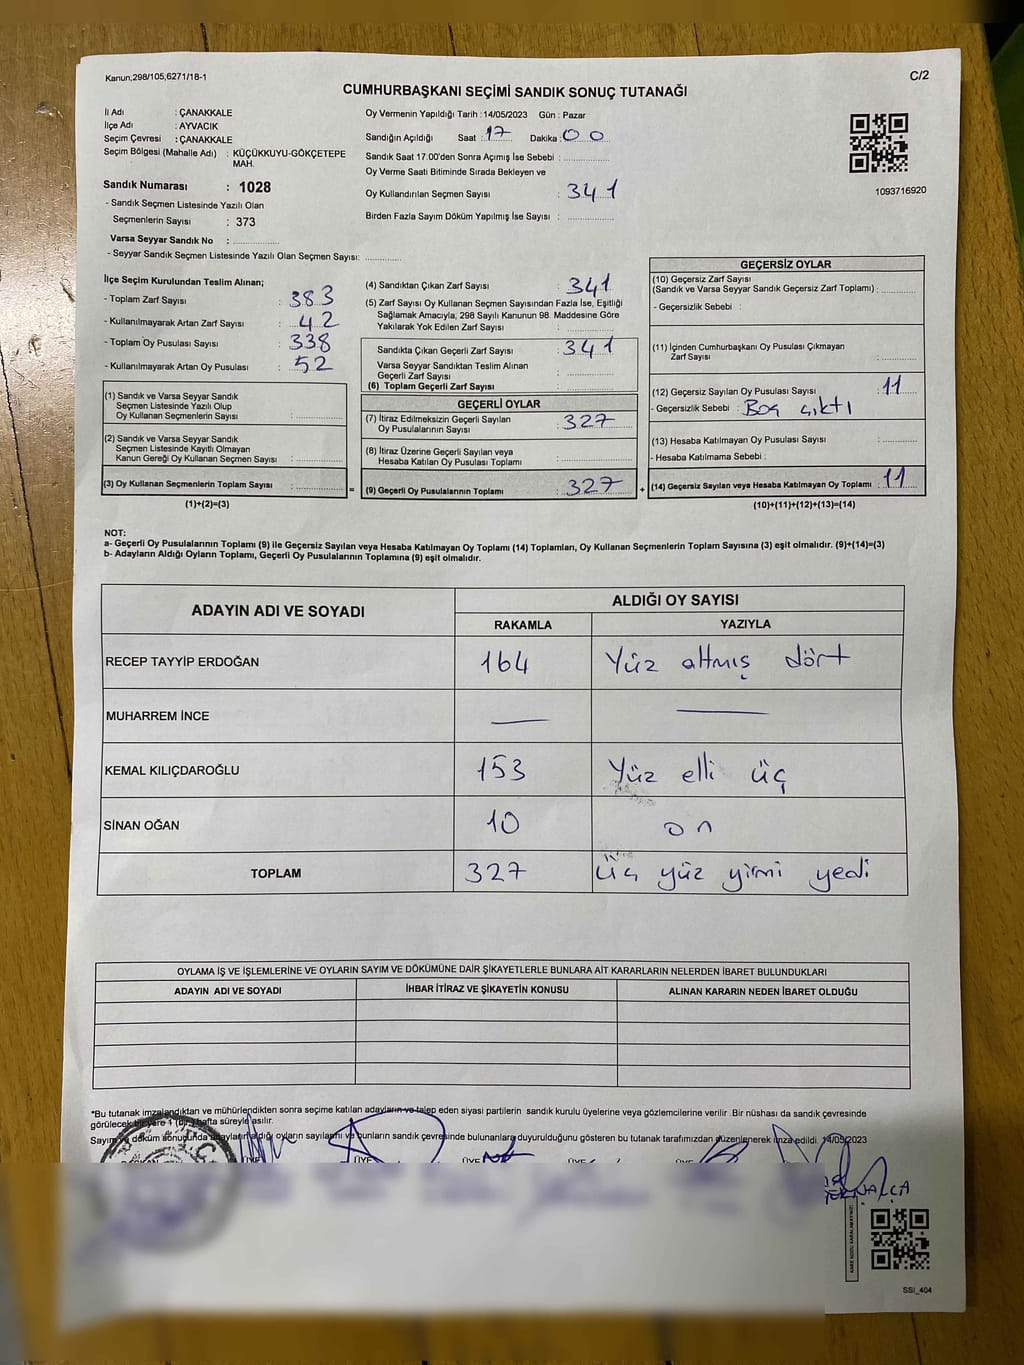 Kanun,298/105,6271/18-1
C/2
CUMHURBAŞKANI SEÇİMİ SANDIK SONUÇ TUTANAĞI
İl Adı : ÇANAKKALE
İlçe Adı : AYVACIK
Seçim Çevresi : ÇANAKKALE
Seçim Bölgesi (Mahalle Adı) : KÜÇÜKKUYU-GÖKÇETEPE
MAH.
Sandık Numarası : 1028
- Sandık Seçmen Listesinde Yazılı Olan
Seçmenlerin Sayısı : 373
Varsa Seyyar Sandık No : ..............
- Seyyar Sandık Seçmen Listesinde Yazılı Olan Seçmen Sayısı: ............
Oy Vermenin Yapıldığı Tarih : 14/05/2023 Gün : Pazar
Sandığın Açıldığı Saat : 17 Dakika : 00
Sandık Saat 17.00'den Sonra Açımış İse Sebebi : ..............
Oy Verme Saati Bitiminde Sırada Bekleyen ve
Oy Kullandırılan Seçmen Sayısı : 341
Birden Fazla Sayım Döküm Yapılmış İse Sayısı : ..............
1093716920
İlçe Seçim Kurulundan Teslim Alınan;
- Toplam Zarf Sayısı : 383
- Kullanılmayarak Artan Zarf Sayısı : 42
- Toplam Oy Pusulası Sayısı : 338
- Kullanılmayarak Artan Oy Pusulası : 52
(1) Sandık ve Varsa Seyyar Sandık
Seçmen Listesinde Yazılı Olup
Oy Kullanan Seçmenlerin Sayısı : ..............
(2) Sandık ve Varsa Seyyar Sandık
Seçmen Listesinde Kayıtlı Olmayan
Kanun Gereği Oy Kullanan Seçmen Sayısı : ..............
(3) Oy Kullanan Seçmenlerin Toplam Sayısı : ..............
(1)+(2)=(3)
=
(4) Sandıktan Çıkan Zarf Sayısı : 341
(5) Zarf Sayısı Oy Kullanan Seçmen Sayısından Fazla İse, Eşitliği
Sağlamak Amacıyla; 298 Sayılı Kanunun 98. Maddesine Göre
Yakılarak Yok Edilen Zarf Sayısı : ..............
Sandıkta Çıkan Geçerli Zarf Sayısı : 341
Varsa Seyyar Sandıktan Teslim Alınan
Geçerli Zarf Sayısı : ..............
(6) Toplam Geçerli Zarf Sayısı : ..............
GEÇERLİ OYLAR
(7) İtiraz Edilmeksizin Geçerli Sayılan
Oy Pusulalarının Sayısı : 327
(8) İtiraz Üzerine Geçerli Sayılan veya
Hesaba Katılan Oy Pusulası Toplamı : ..............
(9) Geçerli Oy Pusulalarının Toplamı : 327
+
GEÇERSİZ OYLAR
(10) Geçersiz Zarf Sayısı
(Sandık ve Varsa Seyyar Sandık Geçersiz Zarf Toplamı) : ..............
- Geçersizlik Sebebi :
(11) İçinden Cumhurbaşkanı Oy Pusulası Çıkmayan
Zarf Sayısı : ..............
(12) Geçersiz Sayılan Oy Pusulası Sayısı : 11
- Geçersizlik Sebebi : Boş çıktı
(13) Hesaba Katılmayan Oy Pusulası Sayısı : ..............
- Hesaba Katılmama Sebebi :
(14) Geçersiz Sayılan veya Hesaba Katılmayan Oy Toplamı : 11
(10)+(11)+(12)+(13)=(14)
NOT:
a- Geçerli Oy Pusulalarının Toplamı (9) ile Geçersiz Sayılan veya Hesaba Katılmayan Oy Toplamı (14) Toplamları, Oy Kullanan Seçmenlerin Toplam Sayısına (3) eşit olmalıdır. (9)+(14)=(3)
b- Adayların Aldığı Oyların Toplamı, Geçerli Oy Pusulalarının Toplamına (9) eşit olmalıdır.
ADAYIN ADI VE SOYADI
ALDIĞI OY SAYISI
RAKAMLA YAZIYLA
RECEP TAYYİP ERDOĞAN 164 Yüz altmış dört
MUHARREM İNCE — —
KEMAL KILIÇDAROĞLU 153 Yüz elli üç
SİNAN OĞAN 10 on
TOPLAM 327 üç yüz yirmi yedi
OYLAMA İŞ VE İŞLEMLERİNE VE OYLARIN SAYIM VE DÖKÜMÜNE DAİR ŞİKAYETLERLE BUNLARA AİT KARARLARIN NELERDEN İBARET BULUNDUKLARI
ADAYIN ADI VE SOYADI İHBAR İTİRAZ VE ŞİKAYETİN KONUSU ALINAN KARARIN NEDEN İBARET OLDUĞU
*Bu tutanak imzalandıktan ve mühürlendikten sonra seçime katılan adayların ve talep eden siyasi partilerin sandık kurulu üyelerine veya gözlemcilerine verilir. Bir nüshası da sandık çevresinde
görülecek bir yere 1 (bir) hafta süreyle asılır.
Sayım ve döküm sonuçunda adayların aldığı oyların sayılarını ve bunların sandık çevresinde bulunanlara duyurulduğunu gösteren bu tutanak tarafımızdan düzenlenerek imza edildi. 14/05/2023
ÜYE ÜYE ÜYE ÜYE ÜYE
KARE KODU KARALAMAYINIZ!
SSI_404